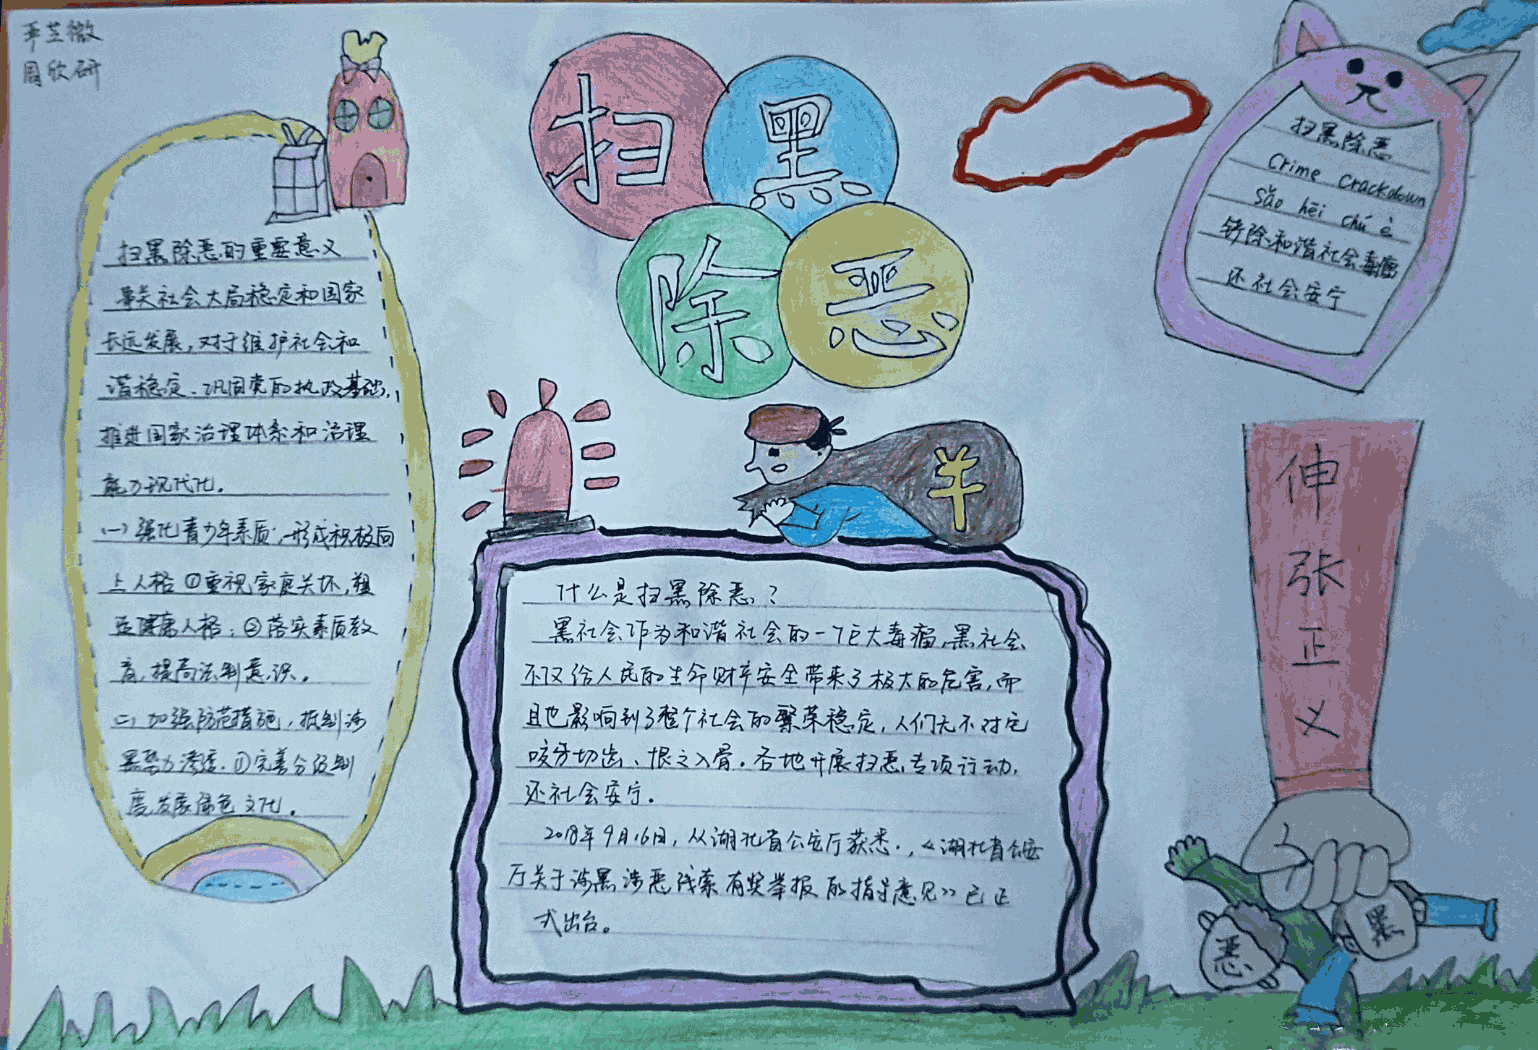 周欣研
扫黑
除恶
扫黑除恶的重要意义
事关社会大局稳定和国家
长远发展,对于维护社会和
谐稳定、巩固党的执政基础,
推进国家治理体系和治理
能力现代化。
(一)强化青少年素质,形成积极向
上人格①重视家庭关怀,塑
造健康人格;②落实素质教
育,提高法制意识。
(二)加强防范措施,抵制涉
黑势力渗透.①完善分级制
度,发展绿色文化。
什么是扫黑除恶?
黑社会作为和谐社会的一个巨大毒瘤,黑社会
不仅给人民的生命财产安全带来了极大的危害,而
且也影响到了整个社会的繁荣稳定,人们无不对它
咬牙切齿、恨之入骨。各地开展扫恶专项行动,
还社会安宁。
2018年9月16日,从湖北省公安厅获悉,《湖北省公安
厅关于涉黑涉恶线索有奖举报的指导意见》已正
式出台。
扫黑除恶
Crime crackdown
sǎo hēi chú è
铲除和谐社会毒瘤
还社会安宁
伸
张
正
义
恶
黑